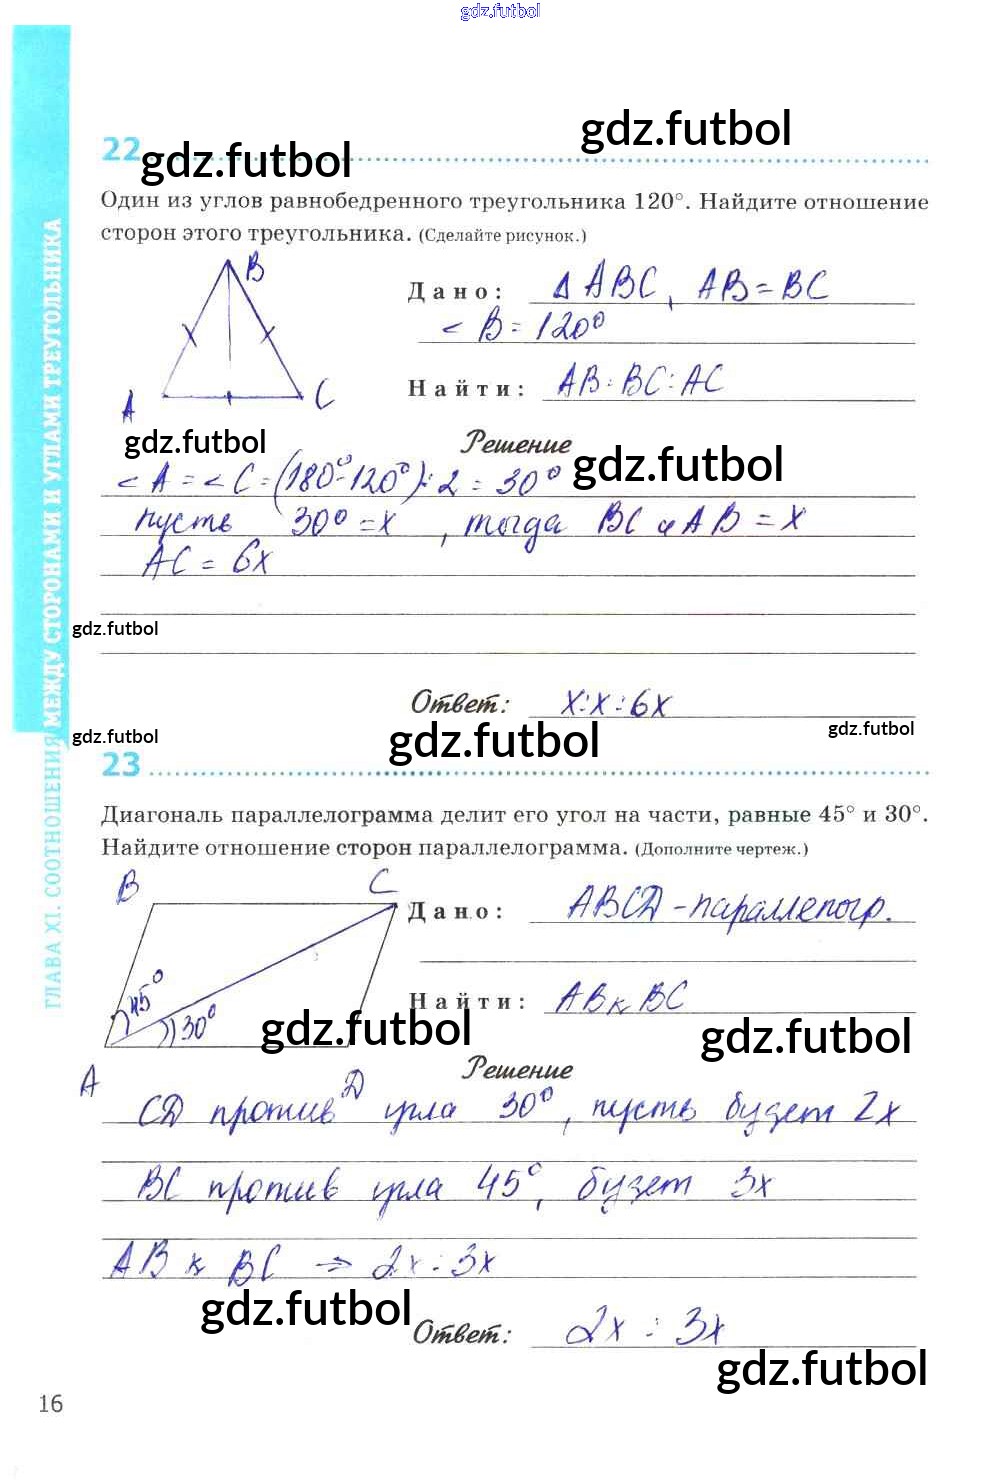 gdz.futbol
gdz.futbol
22
gdz.futbol
Один из углов равнобедренного треугольника 120°. Найдите отношение
сторон этого треугольника. (Сделайте рисунок.)
B
A
C
Дано: Δ ABC, AB = BC
< B = 120°
Найти: AB : BC : AC
gdz.futbol
Решение
gdz.futbol
< A = < C = (180° - 120°) : 2 = 30°
пусть 30° = x, тогда BC и AB = x
AC = 6x
gdz.futbol
Ответ: x : x : 6x
gdz.futbol
gdz.futbol
gdz.futbol
23
Диагональ параллелограмма делит его угол на части, равные 45° и 30°.
Найдите отношение сторон параллелограмма. (Дополните чертеж.)
B
C
45°
30°
A
D
Дано: ABCD - параллелогр.
Найти: AB к BC
gdz.futbol
gdz.futbol
Решение
CD против угла 30°, пусть будет 2x
BC против угла 45°, будет 3x
AB к BC ⇒ 2x : 3x
gdz.futbol
Ответ: 2x : 3x
gdz.futbol
16
ГЛАВА XI. СООТНОШЕНИЯ МЕЖДУ СТОРОНАМИ И УГЛАМИ ТРЕУГОЛЬНИКА